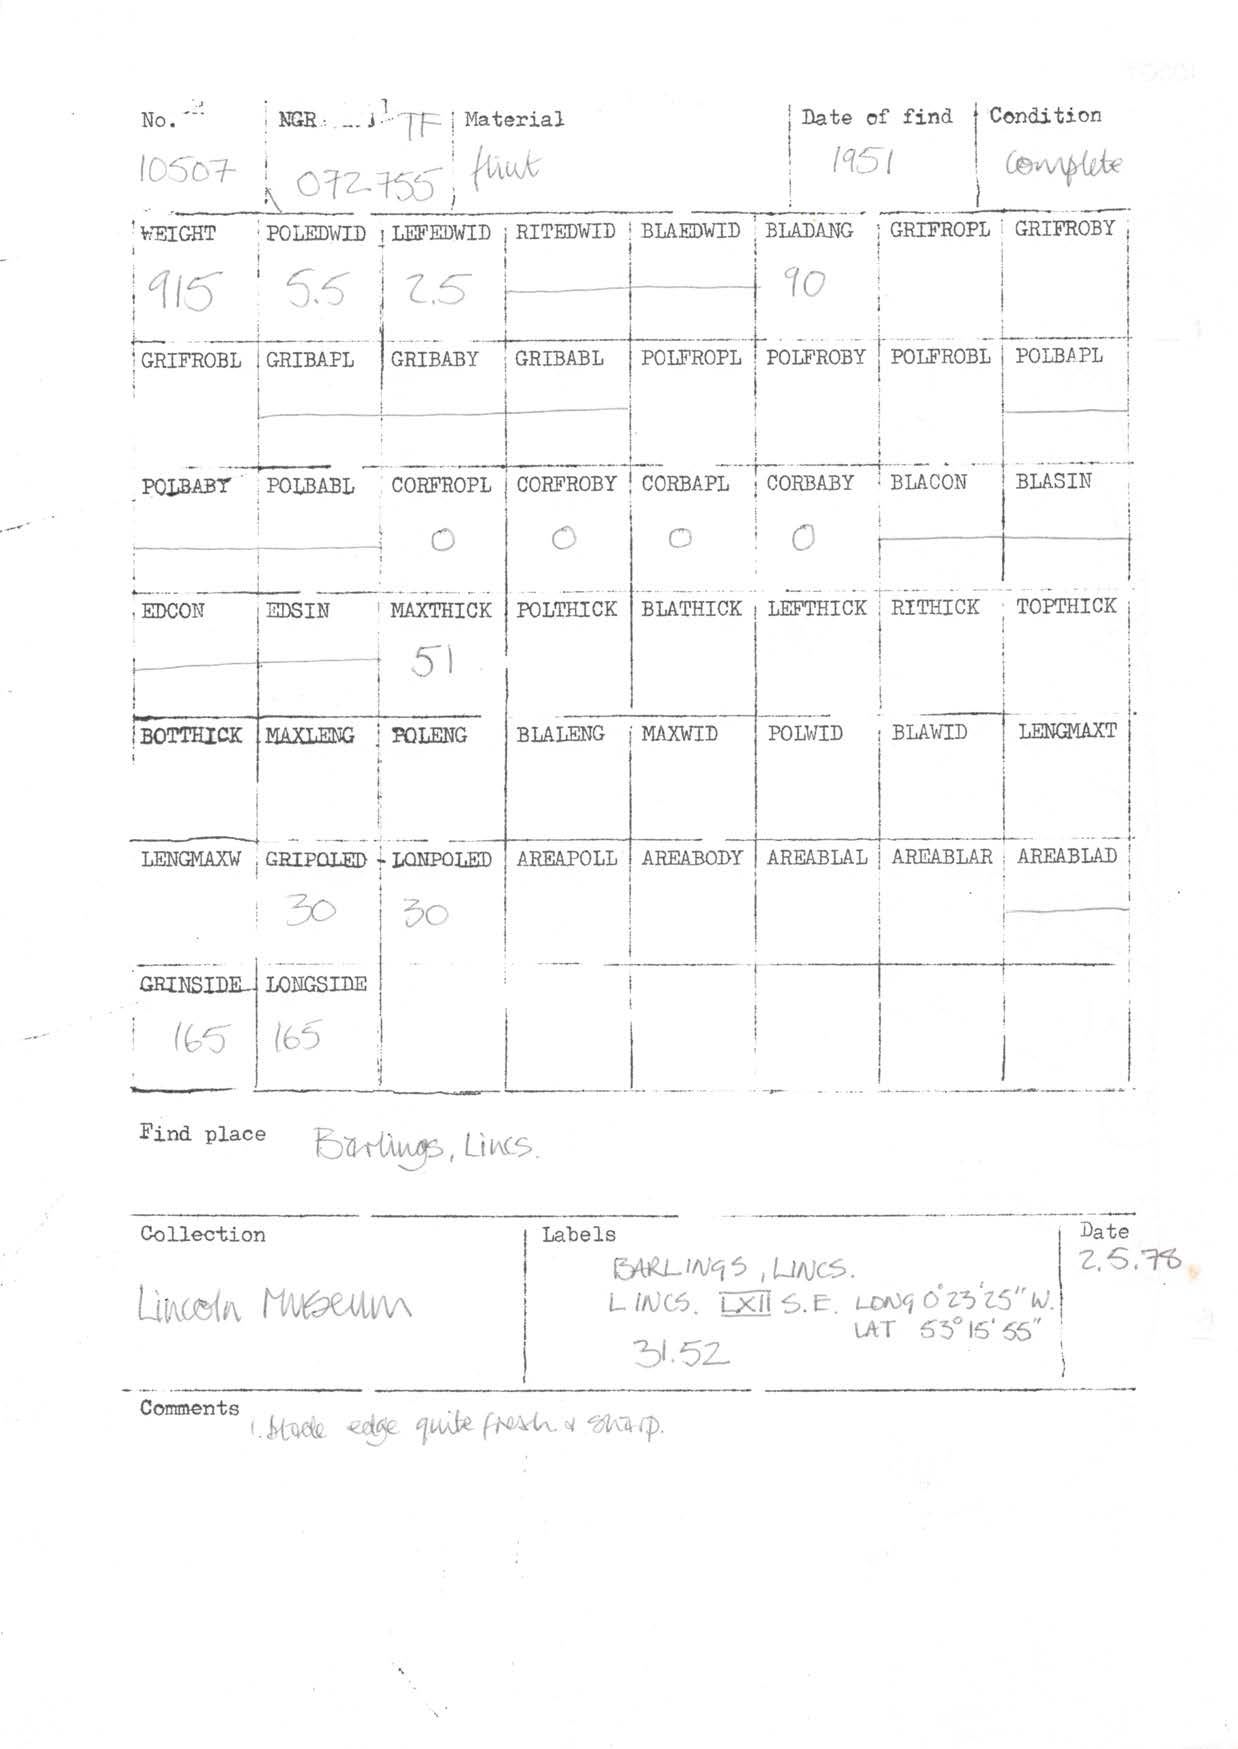 No. NGR: TF Material Date of find Condition
10507 072 755 flint 1951 complete
WEIGHT POLEDWID LEFEDWID RITEDWID BLAEDWID BLADANG GRIFROPL GRIFROBY
915 5.5 2.5 90
GRIFROBL GRIBAPL GRIBABY GRIBABL POLFROPL POLFROBY POLFROBL POLBAPL
POLBABY POLBABL CORFROPL CORFROBY CORBAPL CORBABY BLACON BLASIN
0 0 0 0
EDCON EDSIN MAXTHICK POLTHICK BLATHICK LEFTHICK RITHICK TOPTHICK
51
BOTTHICK MAXLENG POLENG BLALENG MAXWID POLWID BLAWID LENGMAXT
LENGMAXW GRIPOLED LONPOLED AREAPOLL AREABODY AREABLAL AREABLAR AREABLAD
30 30
GRINSIDE LONGSIDE
165 165
Find place Barlings, Lincs.
Collection Labels Date
Lincoln Museum
BARLINGS, LINCS. 2.5.78
LINCS. LXII S.E. LONG 0°23'25" W.
LAT 53°15'55"
31.52
Comments 1. blade edge quite fresh & sharp.